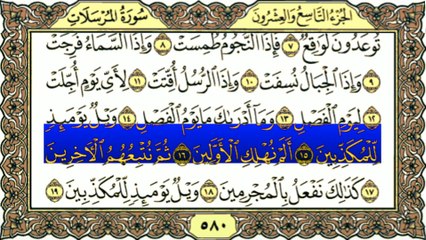 الجزء التاسع والعشرون سورة المرسلات
توعدون لواقع ٧ فإذا النجوم طمست ٨ وإذا السماء فرجت
٩ وإذا الجبال نسفت ١٠ وإذا الرسل أقتت ١١ لأي يوم أجلت
١٢ ليوم الفصل ١٣ وما أدرىك ما يوم الفصل ١٤ ويل يومئذ
للمكذبين ١٥ ألم نهلك الأولين ١٦ ثم نتبعهم الآخرين
١٧ كذلك نفعل بالمجرمين ١٨ ويل يومئذ للمكذبين ١٩
٥٨٠